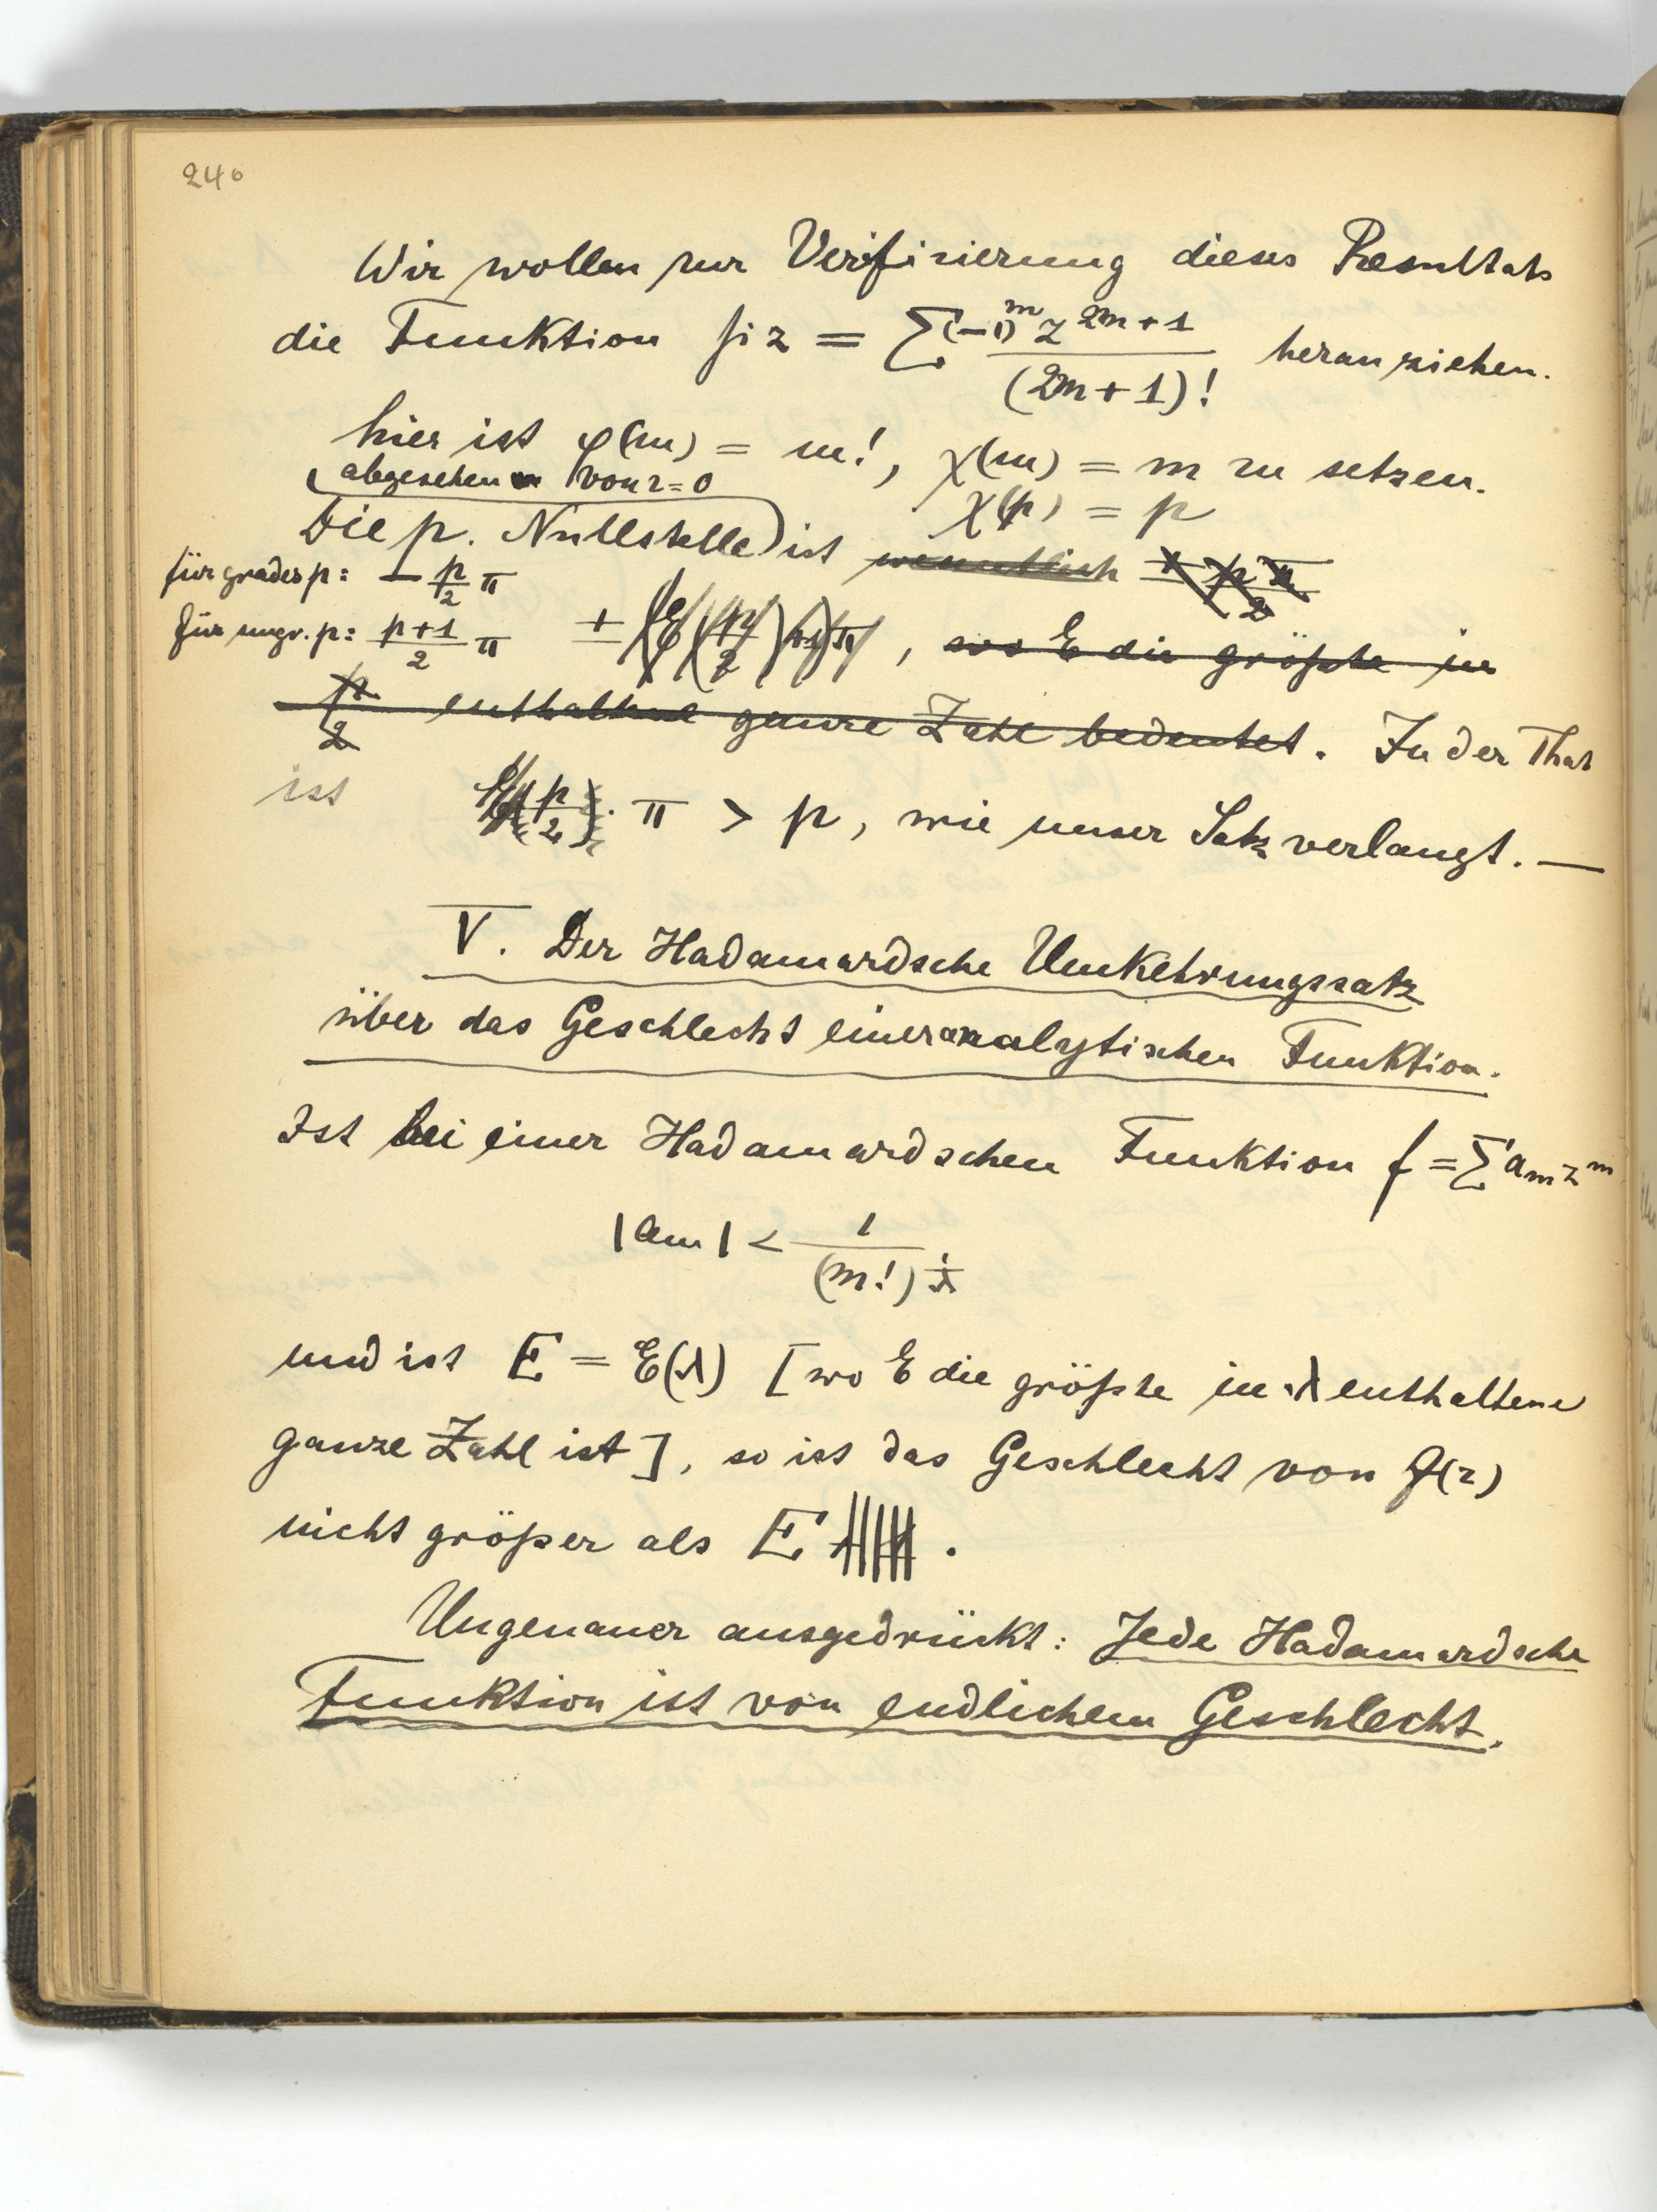 240
Wir wollen zur Verifizierung dieses Resultats
die Funktion si z = ∑ (-1)^m z^{2m+1} / (2m+1)! heranziehen.
hier ist φ(m) = m!, χ(m) = m zu setzen.
(abgesehen von z=0 χ(p) = p
Die p. Nullstelle) ist wesentlich ± pπ/2
für grades p: - p/2 π
für ungr. p: (p+1)/2 π ± , wo E die größte in
p/2 enthaltene ganze Zahl bedeutet. In der That
ist (p/2) · π > p, wie unser Satz verlangt. —
V. Der Hadamardsche Umkehrungssatz
über das Geschlecht einer analytischen Funktion.
Ist bei einer Hadamardschen Funktion f = ∑ a_m z^m
|a_m| < 1 / (m!)^{1/λ}
und ist E = E(λ) [wo E die größte in λ enthaltene
ganze Zahl ist], so ist das Geschlecht von f(z)
nicht größer als E .
Ungenauer ausgedrückt: Jede Hadamardsche
Funktion ist von endlichem Geschlecht.